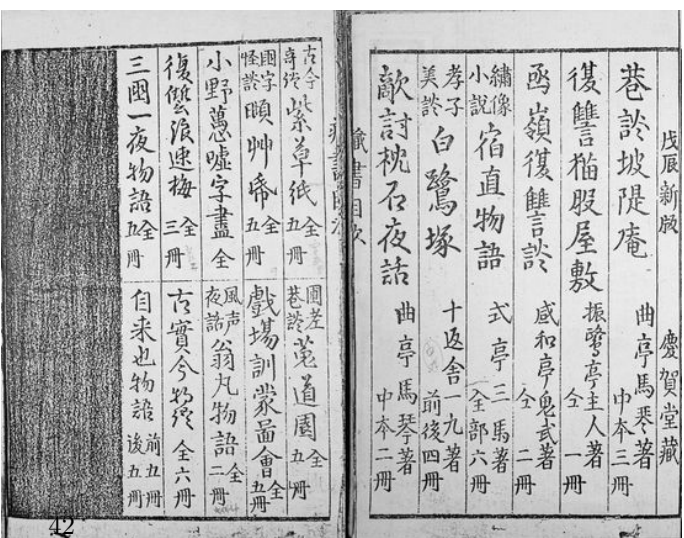 戊辰新版　慶賀堂藏
巷談坡隄庵　曲亭馬琴著　中本三冊
復讐猫股屋敷　振鷺亭主人著　仝一冊
復讐談　感和亭鬼武著　仝二冊
繍像小説　宿直物語　式亭三馬著　全部六冊
孝子美談　白鷺塚　十返舎一九著　前後四冊
敵討枕石夜話　曲亭馬琴著　中本二冊
藏書目次
古今奇談　紫草紙　全五冊　巷談　菟道園　全五冊
國字怪談　頤草紙　全五冊　戲場訓蒙圖會　全五冊
小野篁嘘字盡　全　風声夜話　翁丸物語　全二冊
復讐浪速梅　全三冊　古實今物語　全六冊
三國一夜物語　全五冊　自来也物語　前五冊　後五冊
42